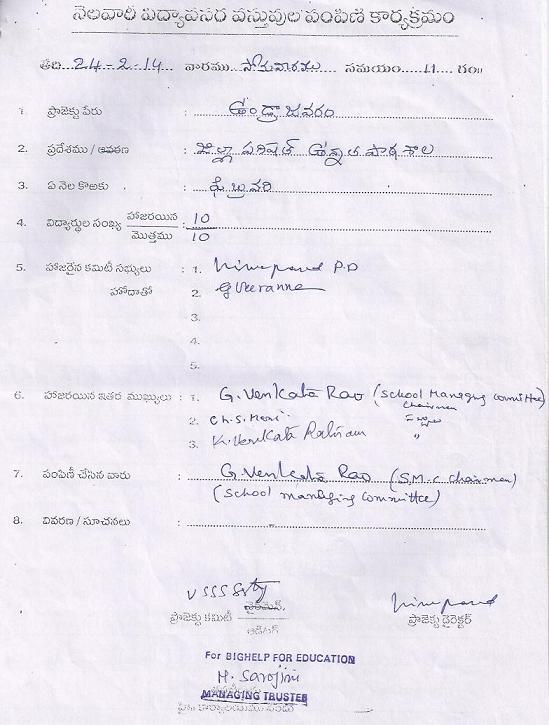 నెలవారీ విద్యావసర వస్తువుల పంపిణీ కార్యక్రమం
తేది 24-2-14 వారము సోమవారము సమయం 11 గం॥
1. ప్రాజెక్టు పేరు : ఉండ్రాజవరం
2. ప్రదేశము / ఆవరణ : జిల్లా పరిషత్ ఉన్నత పాఠశాల
3. ఏ నెల కొఱకు : ఫిబ్రవరి
4. విద్యార్థుల సంఖ్య హాజరయిన : 10
మొత్తము 10
5. హాజరైన కమిటీ సభ్యులు : 1. P.D
హోదాతో 2. G Veeranna
3.
4.
5.
6. హాజరయిన ఇతర ముఖ్యులు : 1. G. Venkata Rao (School Managing Committee)
Chairman
2. Ch. S. Mani
3. K. Venkata Ratnam "
7. పంపిణీ చేసిన వారు : G. Venkata Rao (S.M.C Chairman)
(School managing Committee)
8. వివరణ / సూచనలు :
ప్రాజెక్టు కమిటీ చైర్మెన్, ప్రాజెక్టు డైరెక్టర్
ఆడిటర్
For BIGHELP FOR EDUCATION
M. Sarojini
MANAGING TRUSTEE